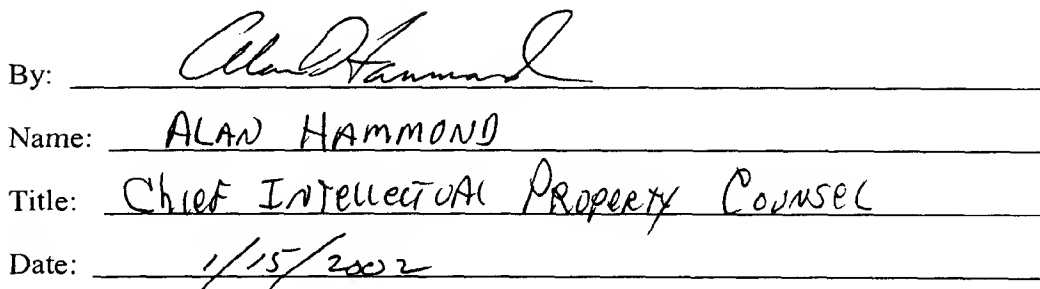 By: Alan D Hammond
Name: ALAN HAMMOND
Title: Chief Intellectual Property Counsel
Date: 1/15/2002